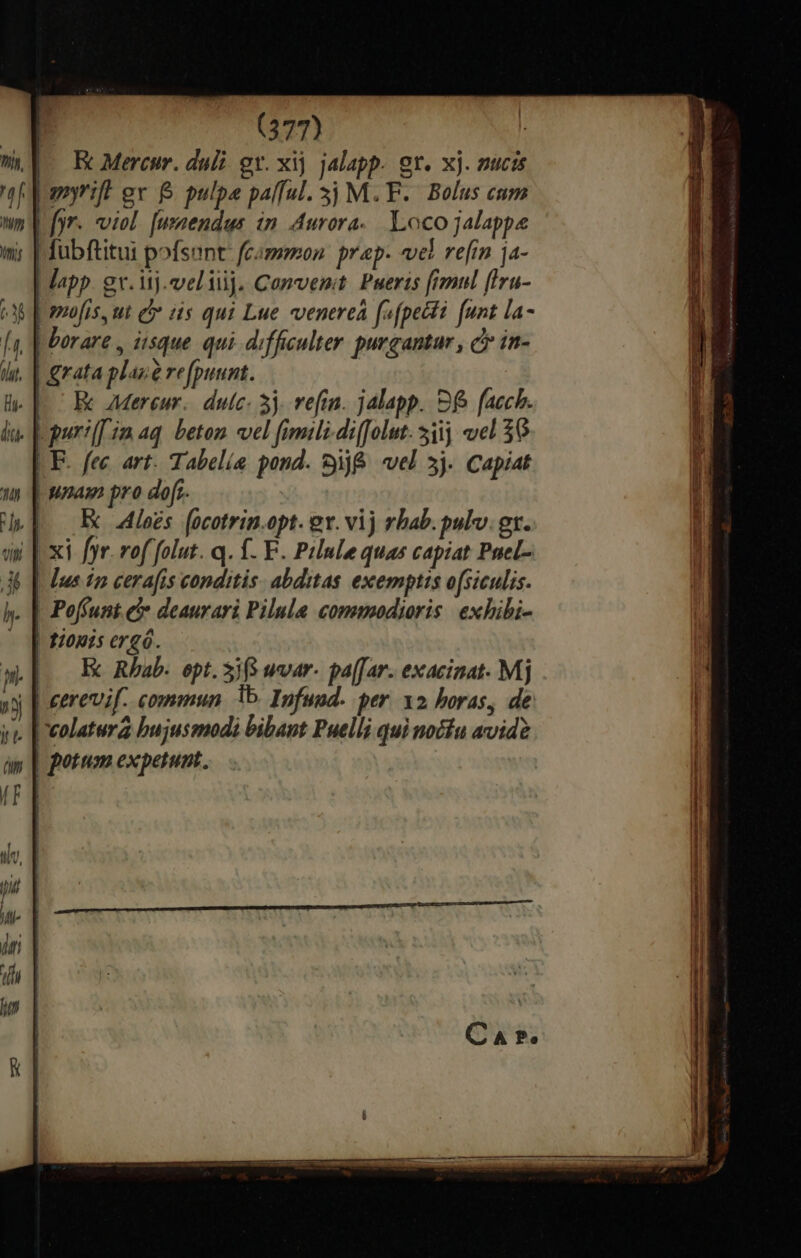 (377)
℞ Mercur. dulc. gr. xij jalapp. gr. xj. nucis
myrist gr ß pulpæ passul. ʒj M. F. Bolus cum
syr. viol sumendus in Aurora. Loco jalappæ
substitui possunt scammon præp. vel resin ja-
lapp. gr. iij. vel iiij. Convenit Pueris simul stru-
mosis, ut & iis qui Lue venereâ suspecti sunt la-
borare, iisque qui difficulter purgantur, & in-
grata planè respuunt.
℞ Mercur. dulc. ʒj. resin. jalapp. ℈ß sacch.
puriss in aq beton vel simili dissolut. ʒiij vel ℥ß
F. sec art. Tabellæ pond. ℈ijß vel ʒj. Capiat
unam pro dosi.
℞ Aloës socotrin. opt. gr. vij rhab. pulv. gr.
xj syr. ros solut. q. s. F. Pilulæ quas capiat Puel-
lus in cerasis conditis abditas exemptis ossiculis.
Possunt & deaurari Pilulæ commodioris exhibi-
tionis ergô.
℞ Rhab. opt. ʒjß uvar. passar. exacinat. Mj
cerevis. commun ℔ Infund. per 12 horas, de
colaturâ hujusmodi bibant Puelli qui noctu avidè
potum expetunt.
Cap.